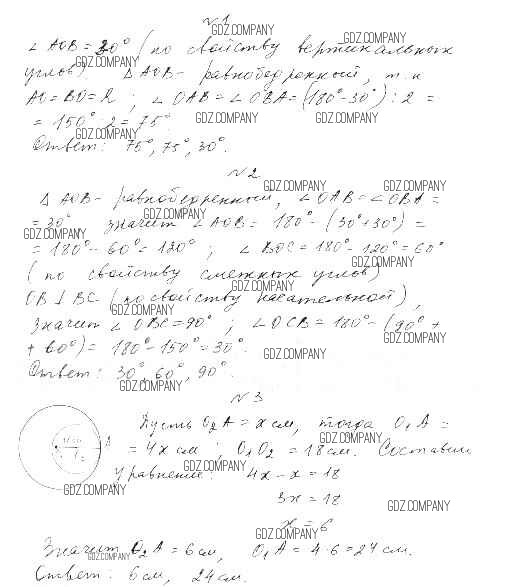 №1
GDZ.COMPANY
∠AOB = 30° (по свойству вертикальных
GDZ.COMPANY
углов). △AOB – равнобедренный, т.к
GDZ.COMPANY
AO = BO = R; ∠OAB = ∠OBA = (180° - 30°) : 2 =
= 150° : 2 = 75°
GDZ.COMPANY GDZ.COMPANY
GDZ.COMPANY
Ответ: 75°, 75°, 30°.
№2
GDZ.COMPANY GDZ.COMPANY
△AOB – равнобедренный, ∠OAB = ∠OBA =
GDZ.COMPANY
= 30° значит ∠AOB = 180° - (30° + 30°) =
GDZ.COMPANY
= 180° - 60° = 120°; ∠BOC = 180° - 120° = 60°
GDZ.COMPANY
(по свойству смежных углов)
GDZ.COMPANY
OB ⊥ BC (по свойству касательной),
GDZ.COMPANY
значит ∠OBC = 90°; ∠OCB = 180° - (90° +
GDZ.COMPANY
+ 60°) = 180° - 150° = 30°.
GDZ.COMPANY
Ответ: 30°, 60°, 90°.
GDZ.COMPANY
№3
Пусть O₂A = x см, тогда O₁A =
GDZ.COMPANY
= 4x см; O₁O₂ = 18 см. Составим
GDZ.COMPANY
уравнение: 4x - x = 18
GDZ.COMPANY
3x = 18
GDZ.COMPANY
x = 6
GDZ.COMPANY
Значит O₂A = 6 см, O₁A = 4 · 6 = 24 см.
GDZ.COMPANY
Ответ: 6 см, 24 см.